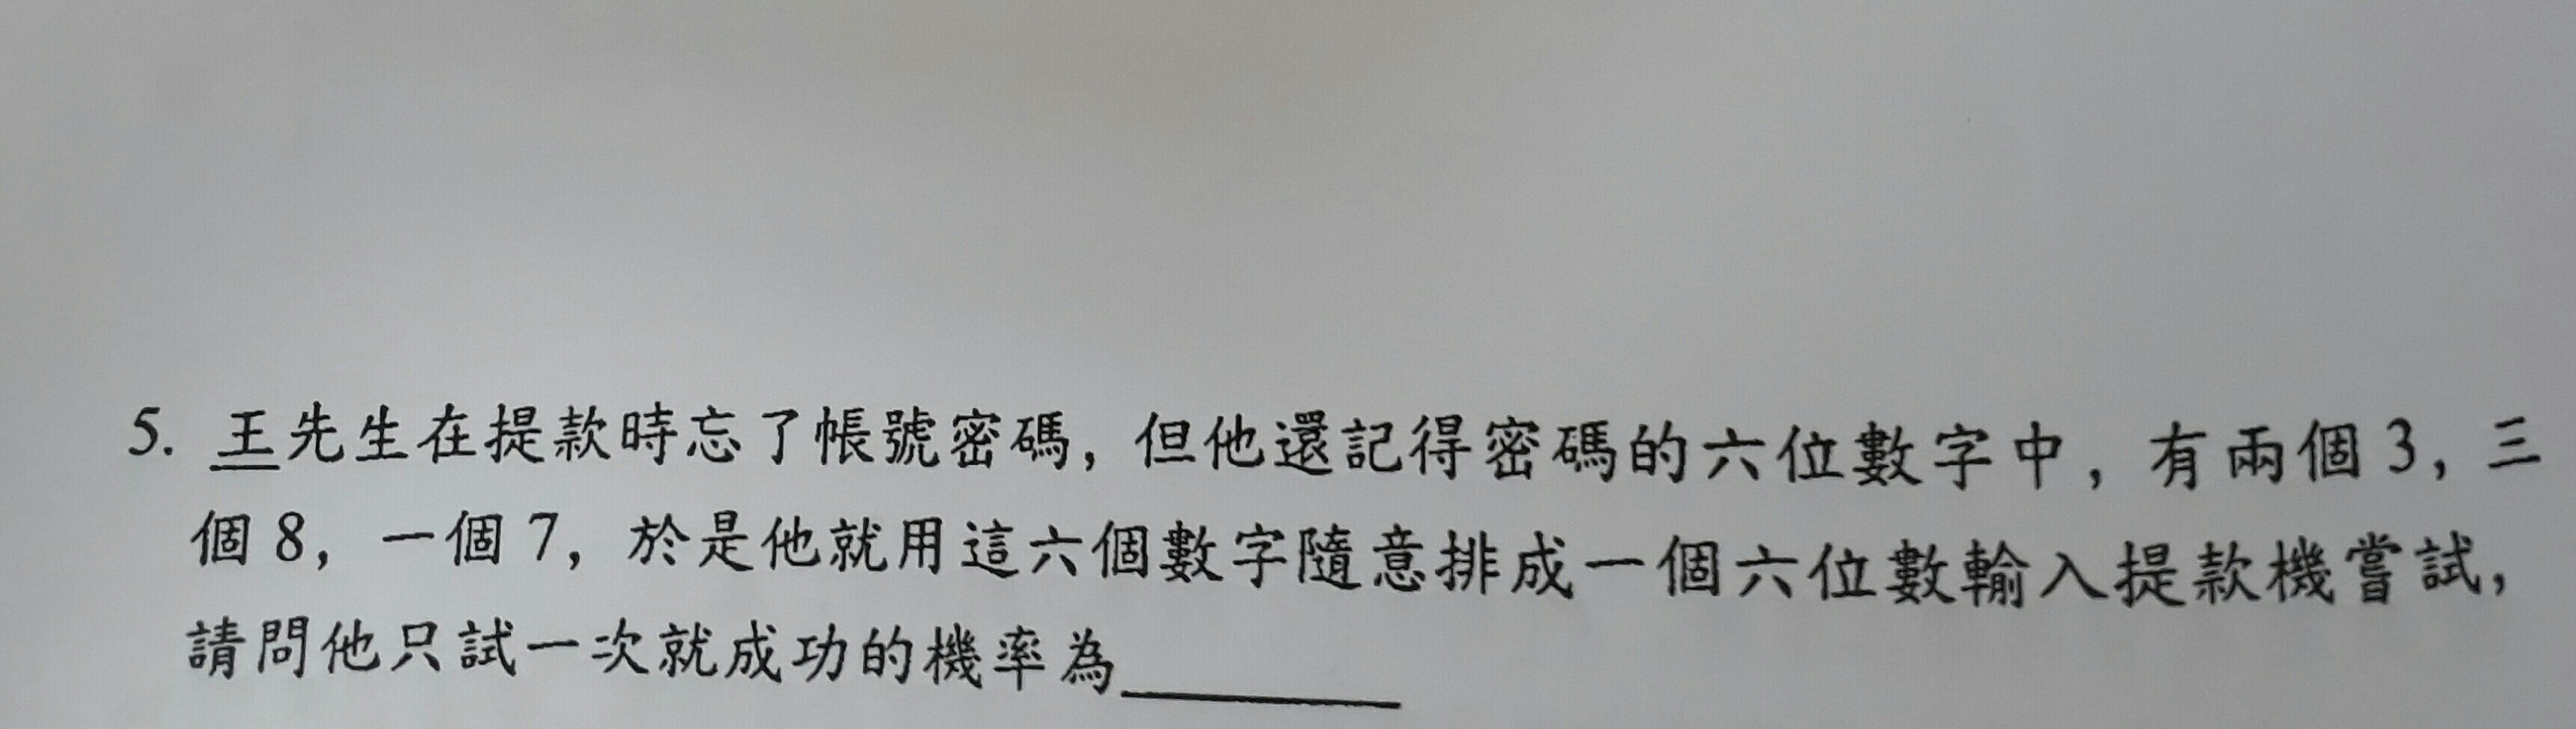 5. 王先生在提款時忘了帳號密碼，但他還記得密碼的六位數字中，有兩個3，三
個8，一個7，於是他就用這六個數字隨意排成一個六位數輸入提款機嘗試，
請問他只試一次就成功的機率為________